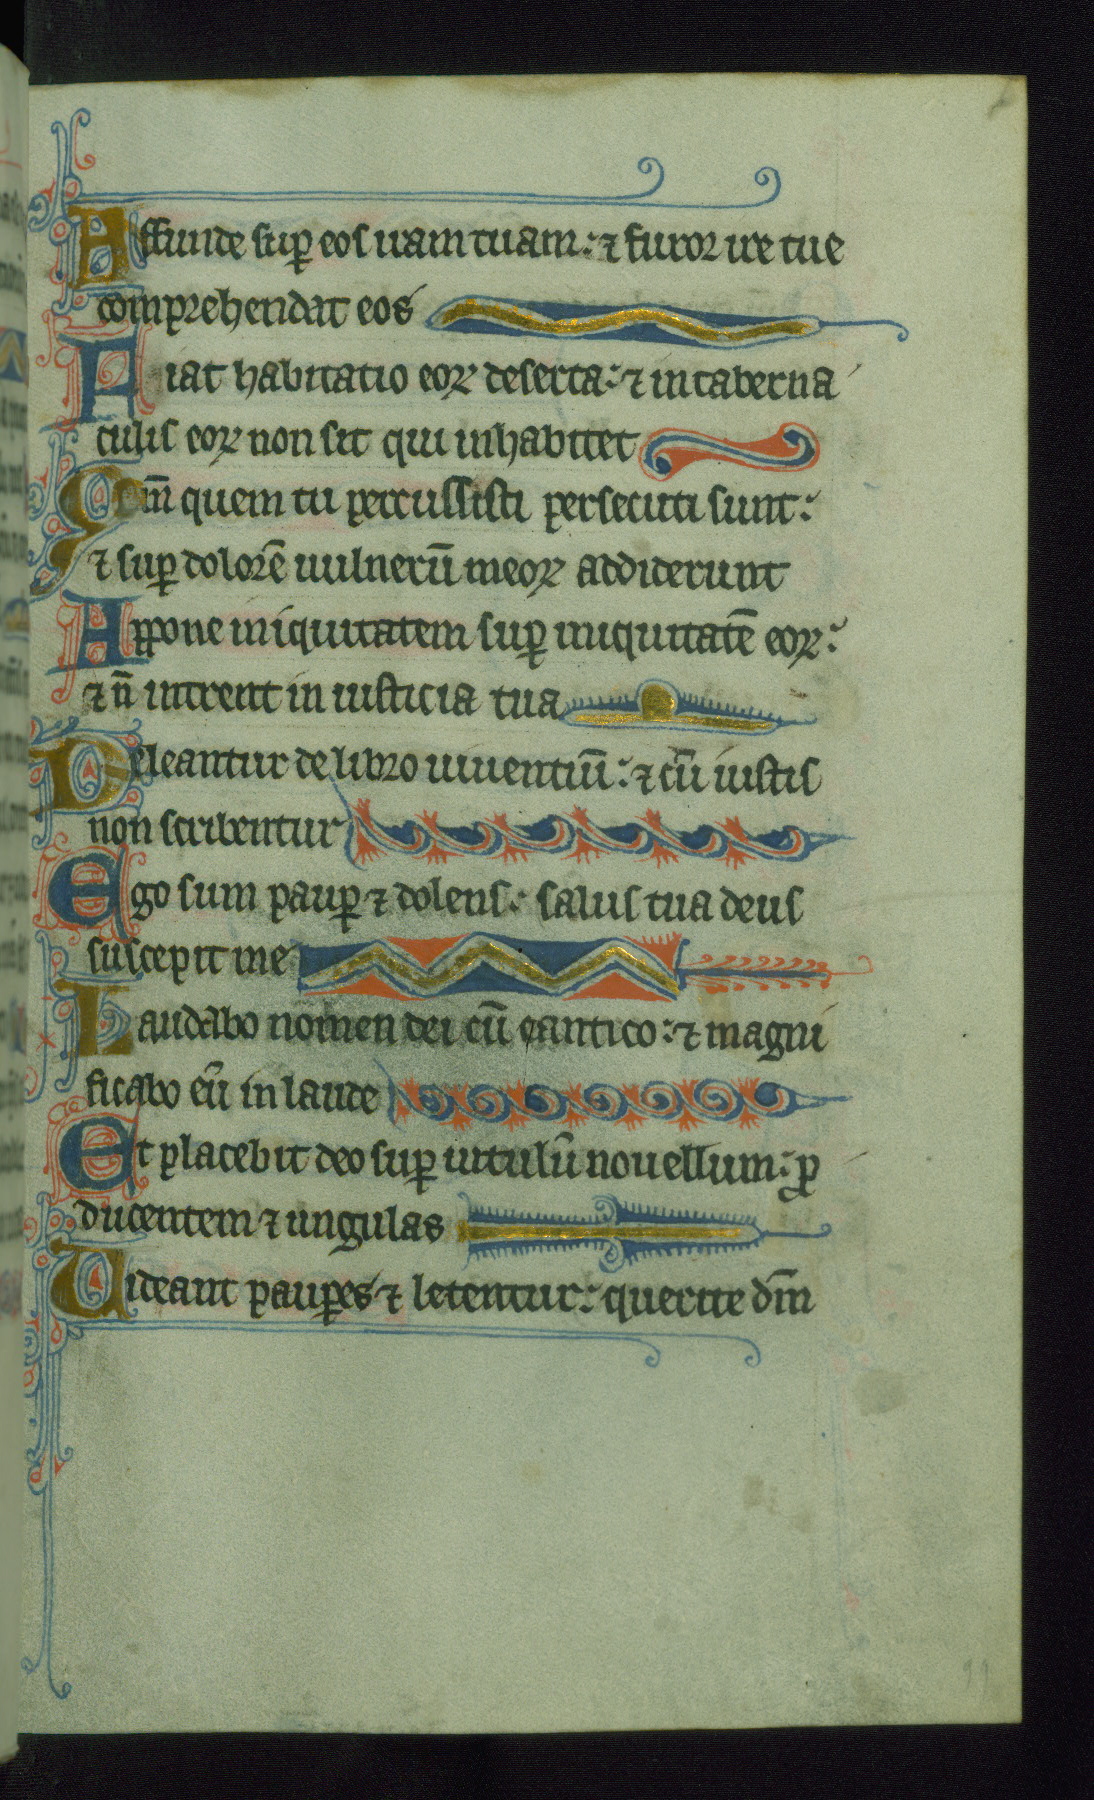 Effunde sup̱ eos iram tuam: ⁊ furor ire tue
comprehendat eos
Fiat habitatio eoꝝ deserta: ⁊ in taberna
culis eoꝝ non sit qui inhabitet
Qm̄ quem tu percussisti persecuti sunt:
⁊ suꝑ dolorē uulnerū meoꝝ addiderunt
Appone iniquitatem suꝑ iniquitatē eoꝝ:
⁊ n̄ intrent in iusticia tua
Deleantur de libro uiuentiū: ⁊ cū iustis
non scribentur
Ego sum pauꝑ ⁊ dolens: salus tua deus
suscepit me
Laudabo nomen dei cū cantico: ⁊ magni
ficabo eū in laude
Et placebit deo suꝑ uitulū nouellum: ꝓ
ducentem ⁊ ungulas
Uideant pauꝑes ⁊ letentur: querite dm̄
99